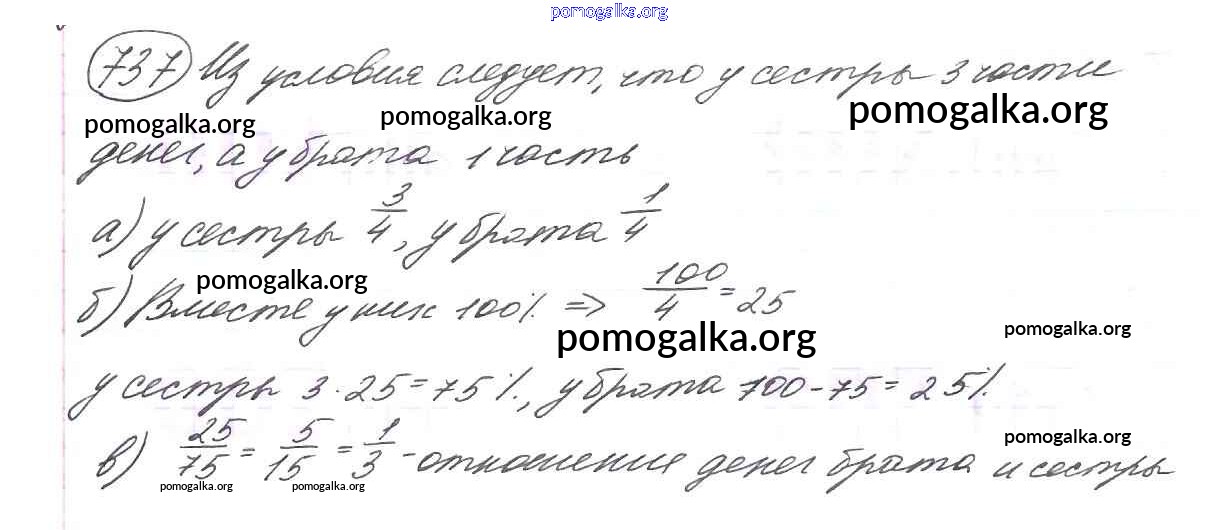 pomogalka.org
737 Из условия следует, что у сестры 3 части
pomogalka.org pomogalka.org pomogalka.org
денег, а у брата 1 часть
а) у сестры 3/4, у брата 1/4
pomogalka.org
б) Вместе у них 100% => 100/4 = 25
pomogalka.org pomogalka.org
у сестры 3·25=75%, у брата 100-75=25%.
pomogalka.org
в) 25/75 = 5/15 = 1/3 - отношение денег брата и сестры
pomogalka.org pomogalka.org